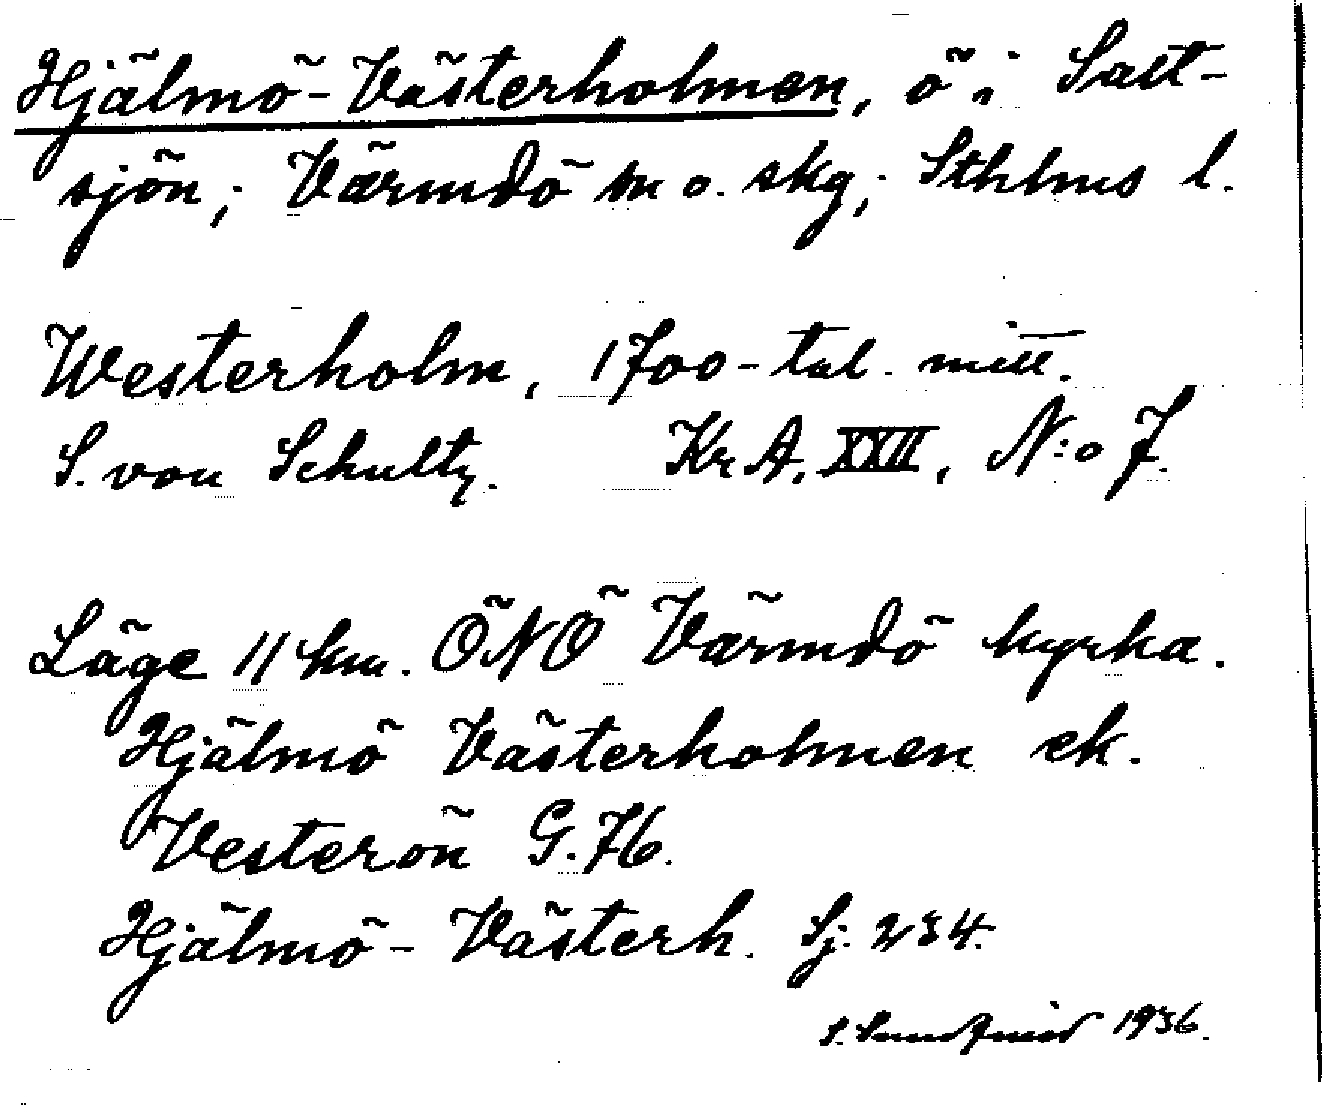 Hjälmö-Västerholmen, ö i Salt-
sjön; Värmdö m o. skg; Sthlms l.
Westerholm, 1700-tal. mitt.
S. von Schultz. Kr A, XXII, N:o 7.
Läge 11 km. ÖNÖ Värmdö kyrka.
Hjälmö Västerholmen ek.
Vesterön G. 76.
Hjälmö-Västerh. Sj. 234.
S. 1936.